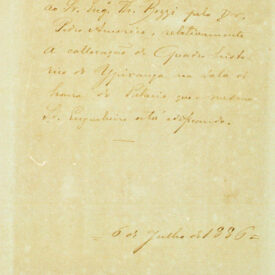 ao Sr. Eng.º Th. Bezzi pelo Dr.
Pedro Americo, relativamente
á collocação do Quadro histo-
rico do Ypiranga na sala d'
honra do Palacio que o mesmo
Sr. Engenheiro está edificando.
6 de Julho de 1886